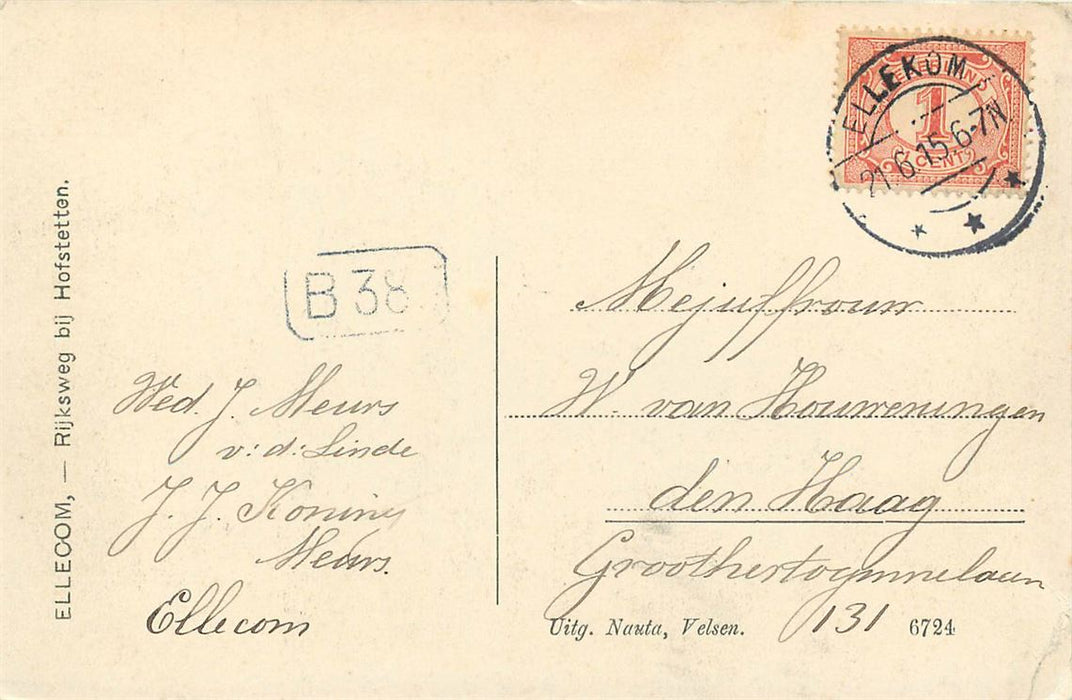 ELLECOM, — Rijksweg bij Hofstetten.
NEDERLAND
1
CENT
ELLEKOM
21.6.15.6-7N
B 38
Wed. J. Meurs
v: d: Linde
J. J. Koning
Meurs.
Ellecom
Mejuffrouw
W. van Houweningen
den Haag
Groothertoginnelaan
131
Uitg. Nauta, Velsen.
6724